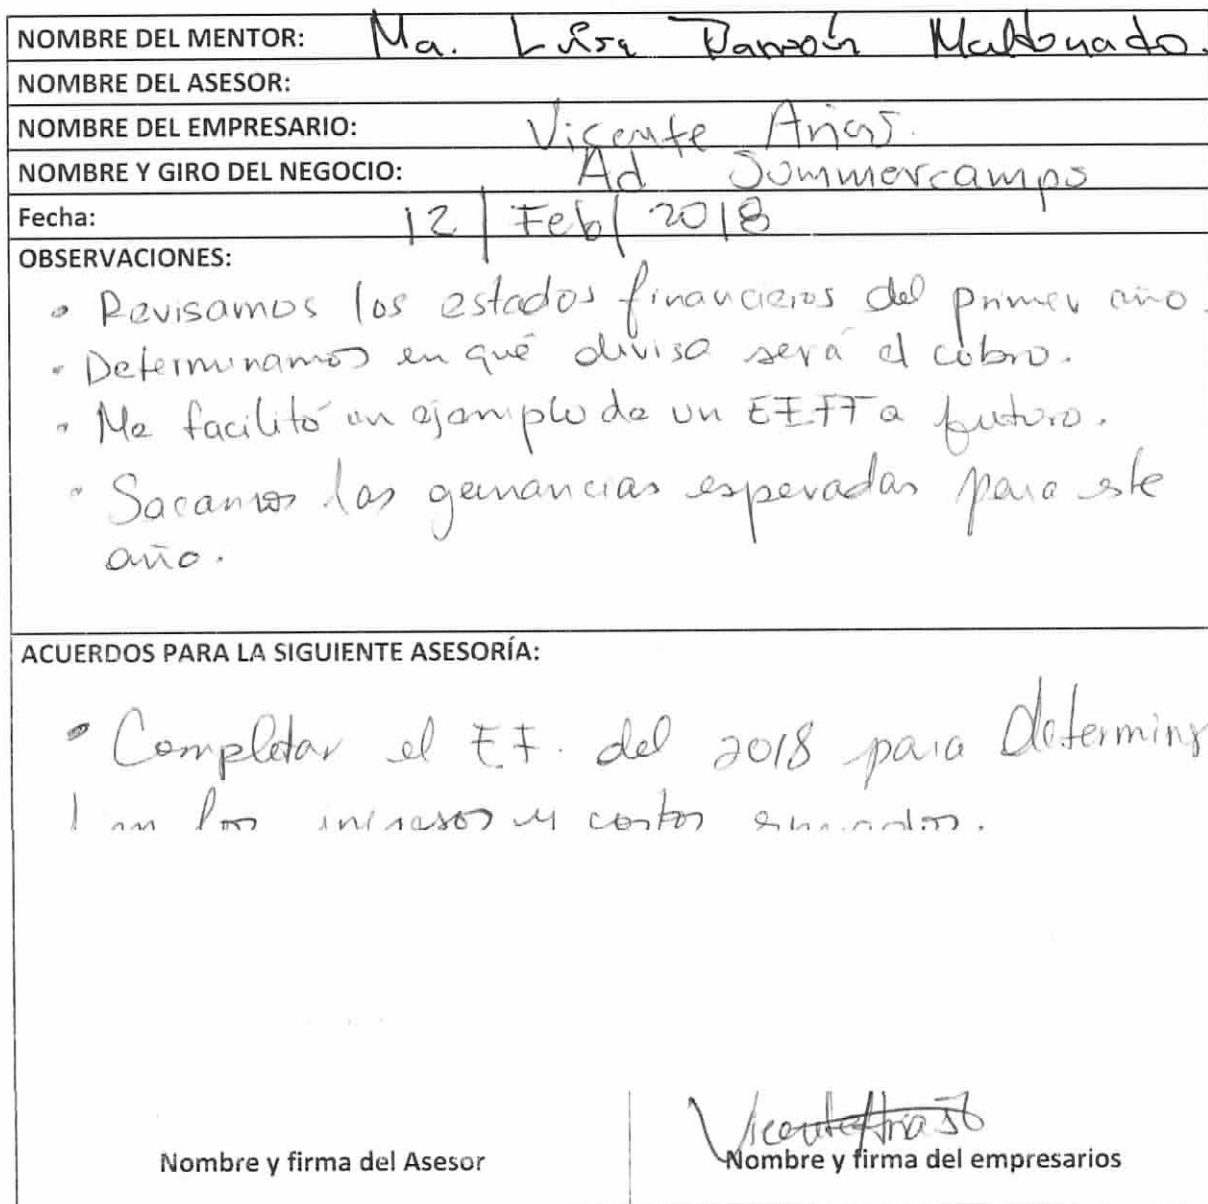 NOMBRE DEL MENTOR: Ma. Luisa Maldonado.
NOMBRE DEL ASESOR:
NOMBRE DEL EMPRESARIO: Vicente Arias.
NOMBRE Y GIRO DEL NEGOCIO: Ad Summercamps
Fecha: 12 | Feb | 2018
OBSERVACIONES:
• Revisamos los estados financieros del primer año.
• Determinamos en qué divisa será el cobro.
• Me facilitó un ejemplo de un EEFF a futuro.
• Sacamos las ganancias esperadas para este
año.
ACUERDOS PARA LA SIGUIENTE ASESORÍA:
• Completar el EF. del 2018 para determinar
los y costos
Vicente Arias
Nombre y firma del Asesor
Nombre y firma del empresarios